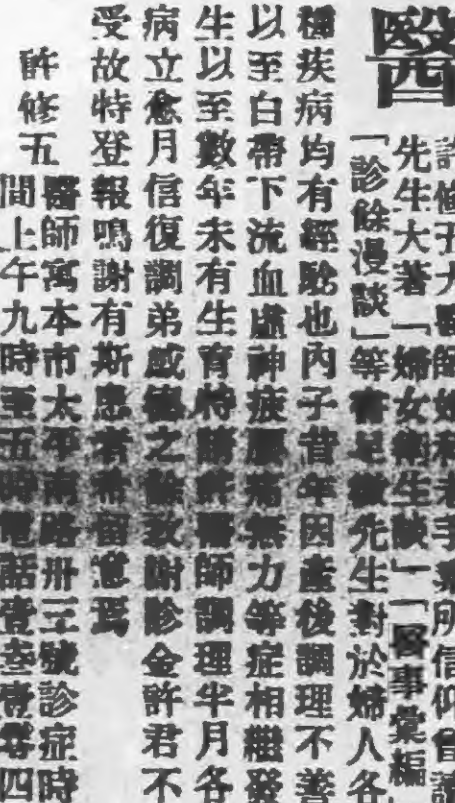 醫
許修五大醫師婦科老手素所信仰曾讀
先生大著「婦女衛生談」「醫事彙編
「診餘漫談」等書足徵先生對於婦人各
種疾病均有經驗也內子昔年因產後調理不善
以至白帶下流血虛神疲腰痛無力等症相繼發
生以至數年未有生育特請許醫師調理半月各
病立愈月信復調弟感德之餘敬謝診金許君不
受故特登報鳴謝有斯患者希留意焉
許修五
醫師寓本市太平南路卅三號診症時
間上午九時至五時電話壹叁壹零四